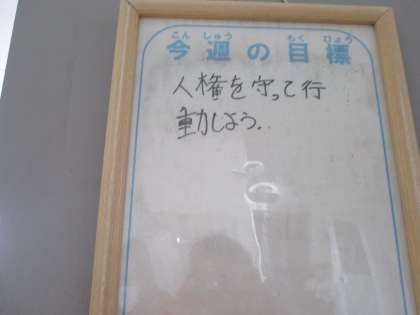 こんしゅうもくひょう
今週の目標
人権を守って行
動しよう.